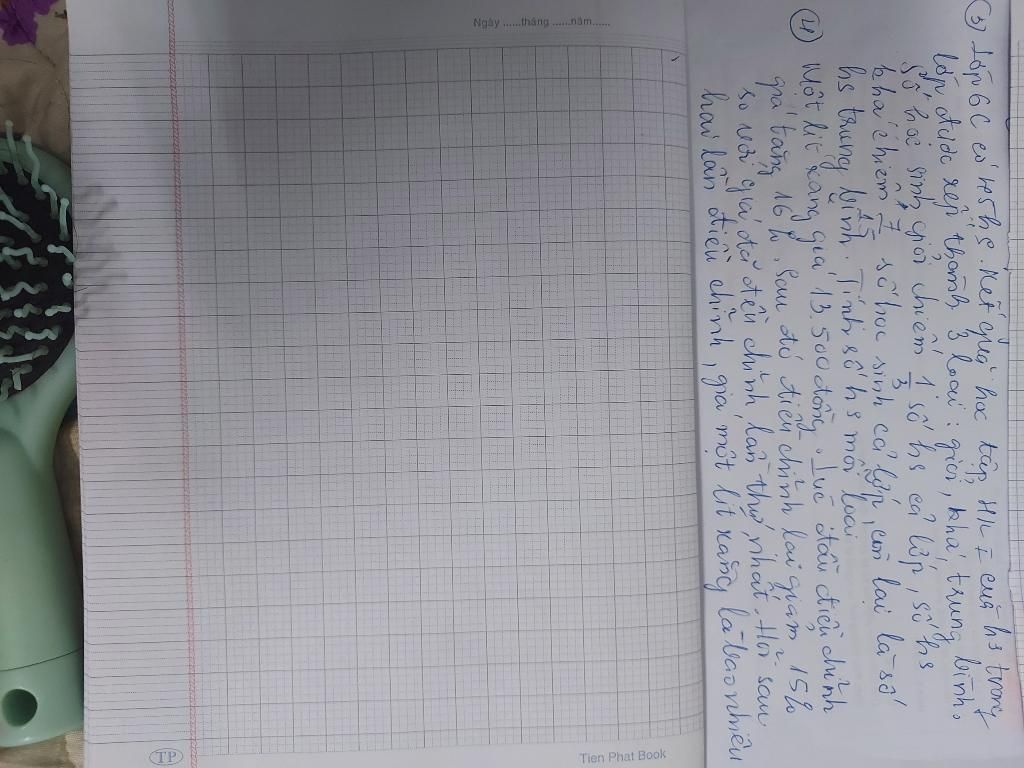 ③ Lớp 6C có 45hs. Kết quả học tập HK I của hs trong
lớp được xếp thành 3 loại: giỏi, khá, trung bình.
Số học sinh giỏi chiếm 1/3 số hs cả lớp, số hs
khá chiếm 7/15 số học sinh cả lớp, còn lại là số
hs trung bình. Tính số hs mỗi loại
④ Một lít xăng giá 13.500 đồng. Lúc đầu điều chỉnh
giá tăng 16%, sau đó điều chỉnh lại giảm 15%
so với giá đã điều chỉnh lần thứ nhất. Hỏi sau
hai lần điều chỉnh, giá một lít xăng là bao nhiêu
Ngày ......tháng ......năm......
TP
Tien Phat Book